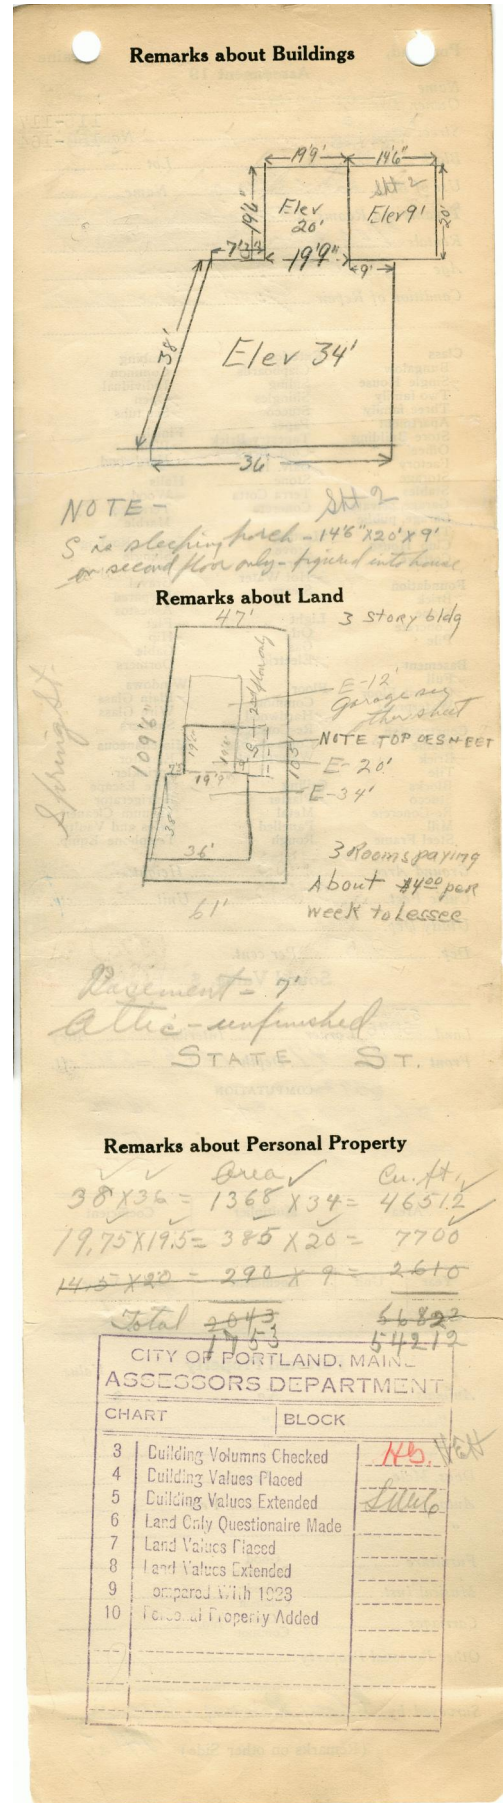 Remarks about Buildings
19'9" 14'6"
19'6" Elev 20' Sht 2 Elev 9' 20'
7' 19'9" 9'
38' Elev 34'
36'
NOTE - Sht 2
S is sleeping porch - 14'6" X 20' X 9'
on second floor only - figured into house
Remarks about Land
47' 3 Story bldg
Spring St.
109'6" 2nd floor only 103'
E-12'
Garage see
other sheet
NOTE TOP OF SHEET
E-20'
E-34'
19'9"
38'
36'
3 Rooms paying
About $4.00 per
week to Lessee
61'
Basement - 7'
Attic - unfinished
STATE ST.
Remarks about Personal Property
Area Cu. ft.
38 X 36 = 1368 X 34 = 46512
19.75 X 19.5 = 385 X 20 = 7700
14.5 X 20 = 290 X 9 = 2610
Total 2043
1753 54212
CITY OF PORTLAND, MAINE
ASSESSORS DEPARTMENT
CHART BLOCK
3 Building Volumns Checked
4 Building Values Placed
5 Building Values Extended
6 Land Only Questionaire Made
7 Land Values Placed
8 Land Values Extended
9 ompared With 1923
10 Personal Property Added